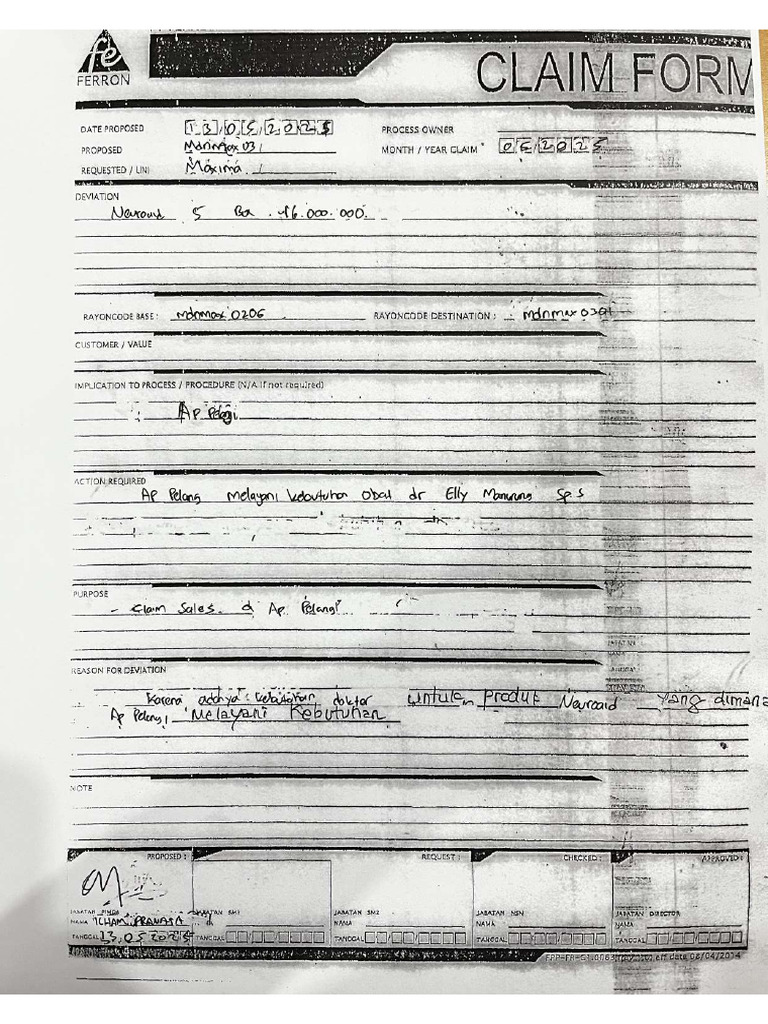 FERRON
CLAIM FORM
DATE PROPOSED 13/05/2025 PROCESS OWNER
PROPOSED Mdnmax 03 MONTH / YEAR CLAIM 05/2025
REQUESTED / LINI Maxima
DEVIATION
Neuroaid 5 Box 16.000.000.
RAYONCODE BASE : mdnmax 0206 RAYONCODE DESTINATION : mdnmax
CUSTOMER / VALUE
IMPLICATION TO PROCESS / PROCEDURE (N/A if not required)
Ap Pelangi
ACTION REQUIRED
Ap Pelangi Melayani kebutuhan Obat dr Elly Manurung Sp.S
PURPOSE
- Claim Sales di Ap Pelangi
REASON FOR DEVIATION
Karena adanya kebutuhan doktor untuk produk Neuroaid yang dimana
Ap Pelangi Melayani Kebutuhan
NOTE
PROPOSED : REQUEST : CHECKED : APPROVED :
JABATAN JABATAN SM1 JABATAN SM2 JABATAN NSM JABATAN DIRECTOR
NAMA ICHAM PRANATA NAMA NAMA NAMA
TANGGAL 13.05 2025 TANGGAL TANGGAL TANGGAL TANGGAL
eff date 08/04/2014